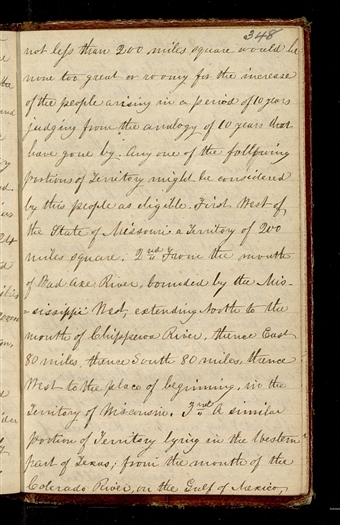 348
not less than 200 miles square would be
none too great or roomy for the increase
of the people arising in a period of 10 years
judging from the analogy of 10 years that
have gone by. Any one of the following
portions of Territory might be considered
by this people as eligible. First West of
the State of Missouri a Territory of 200
miles square. 2nd From the mouth
of Bad axe River, bounded by the Mis-
-sissippi West, extending North to the
mouth of Chippeewa River, thence East
80 miles, thence South 80 miles, thence
West to the place of beginning, in the
Territory of Wisconsin. 3rd A similar
portion of Territory lying in the Western
part of Texas; from the mouth of the
Colerado River, on the Gulf of Mexico,